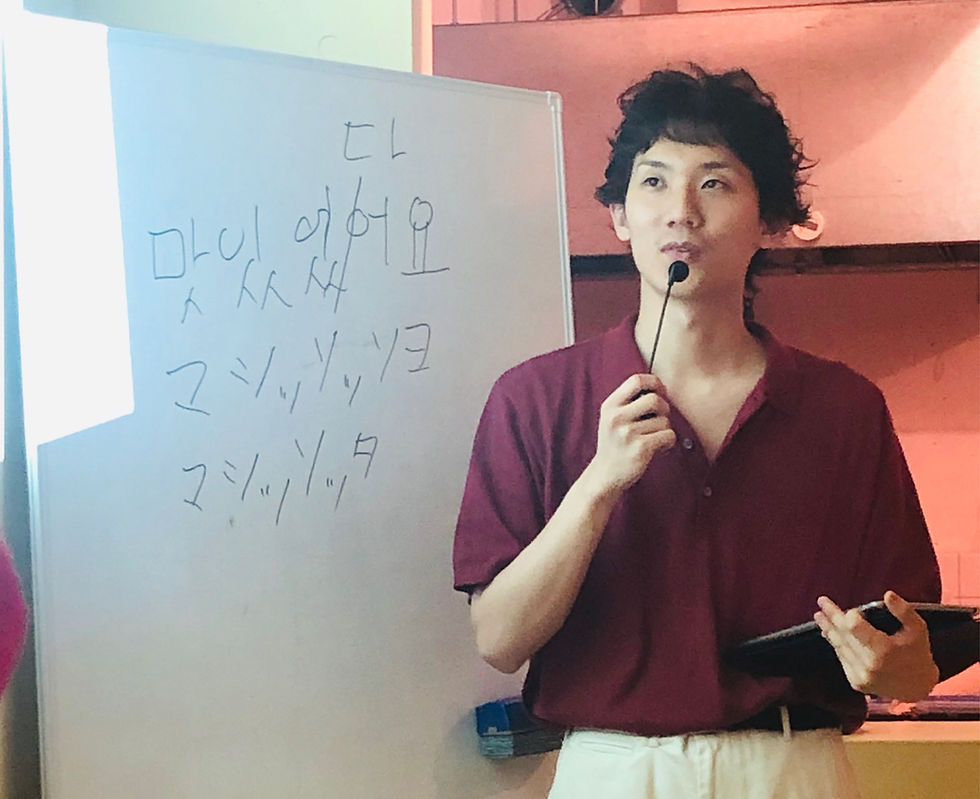 다
맛있었어요
マシッソッソヨ
マシッソッタ